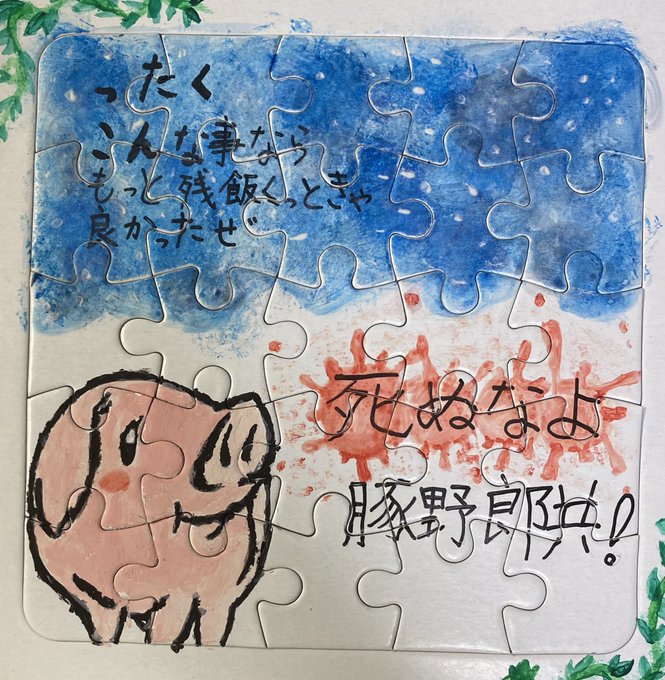 ったく
こんな事なら
もっと残飯くっときゃ
良かったぜ
死ぬなよ
豚野郎共!